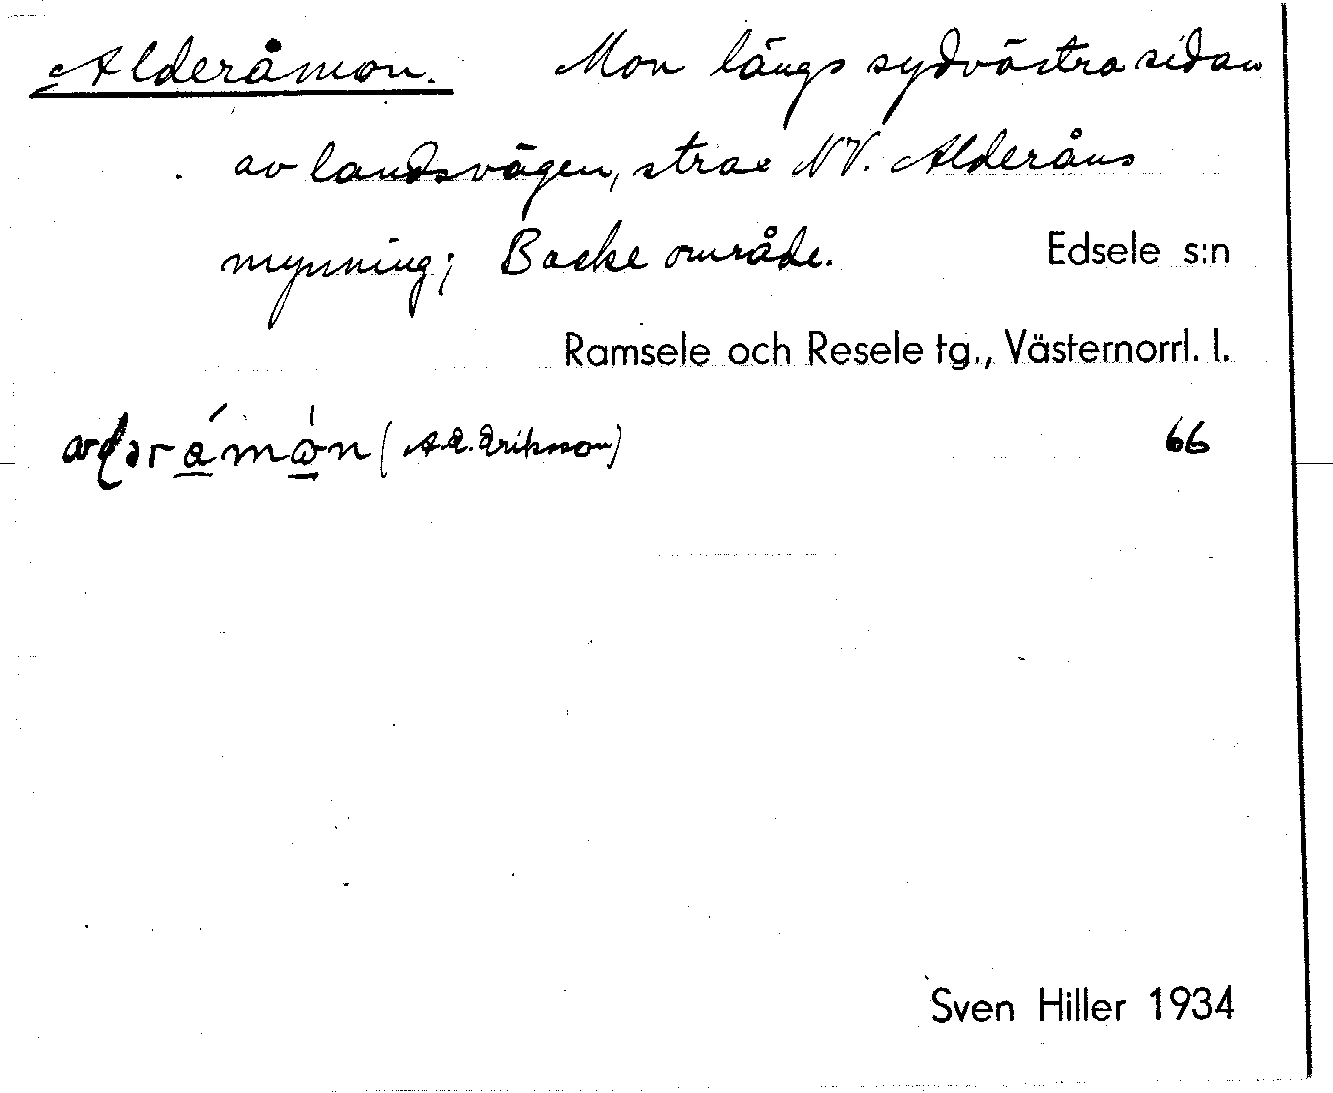 Alderåmon. Mon längs sydvästra sidan
av landsvägen, strax NV. Alderåns
mynning; Backe område. Edsele s:n
Ramsele och Resele tg., Västernorrl. l.
(A.E. Eriksson) 66
Sven Hiller 1934